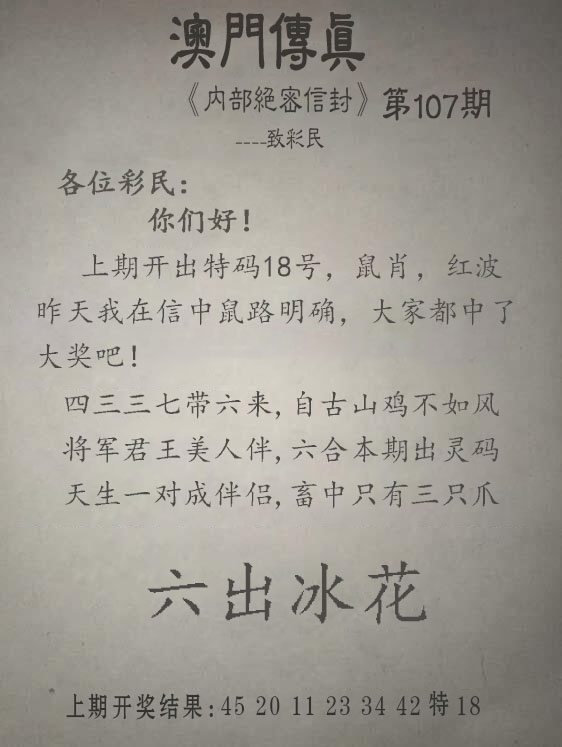 澳門傳眞
《内部絕密信封》第107期
----致彩民
各位彩民：
你们好！
上期开出特码18号，鼠肖，红波
昨天我在信中鼠路明确，大家都中了
大奖吧！
四三三七带六来,自古山鸡不如风
将军君王美人伴,六合本期出灵码
天生一对成伴侣,畜中只有三只爪
六出冰花
上期开奖结果:45 20 11 23 34 42 特 18